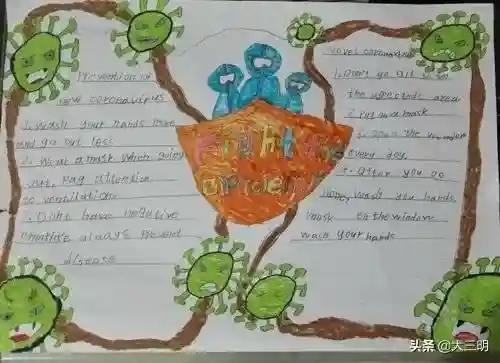 Prevention of
new coronavirus
1. Wash your hands more
and go out less
2. Wear a mask which going
out, Pay attention
to ventilation
3. Don't have negative
emotions always prevent
disease
Fight the
epidemic
Novel coronavirus
1. Don't go out
the area
2. Put on a mask
3. open the window
every day.
5. after you go
home, wash the hands
mask the window
wash your hands
头条@大三明